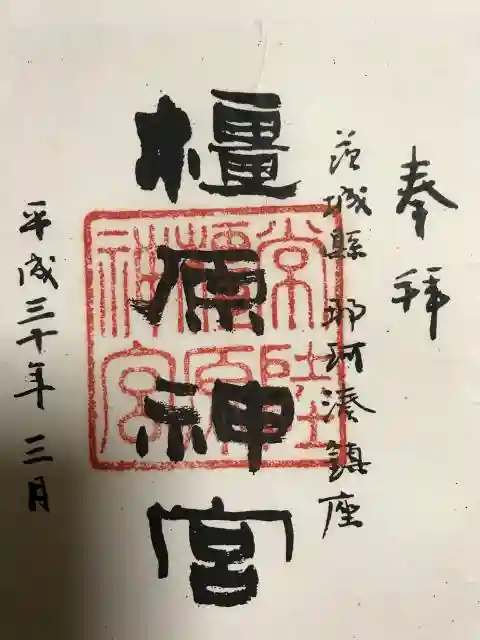 奉拝
茨城縣那珂湊鎮座
橿原神宮
常陸
橿原
神宮
平成三十年三月